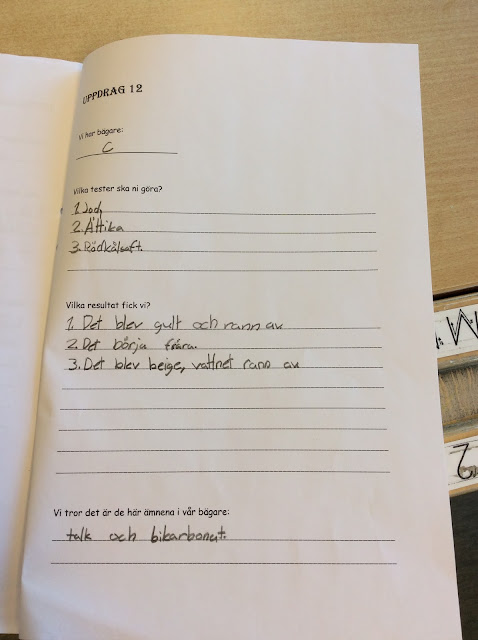 UPPDRAG 12
Vi har bägare:
C
Vilka tester ska ni göra?
1. Jod,
2. Ättika
3. Rödkålsaft.
Vilka resultat fick vi?
1. Det blev gult och rann av
2. Det börja fräsa.
3. Det blev beige, vattnet rann av
Vi tror det är de här ämnena i vår bägare:
talk och bikarbonat.